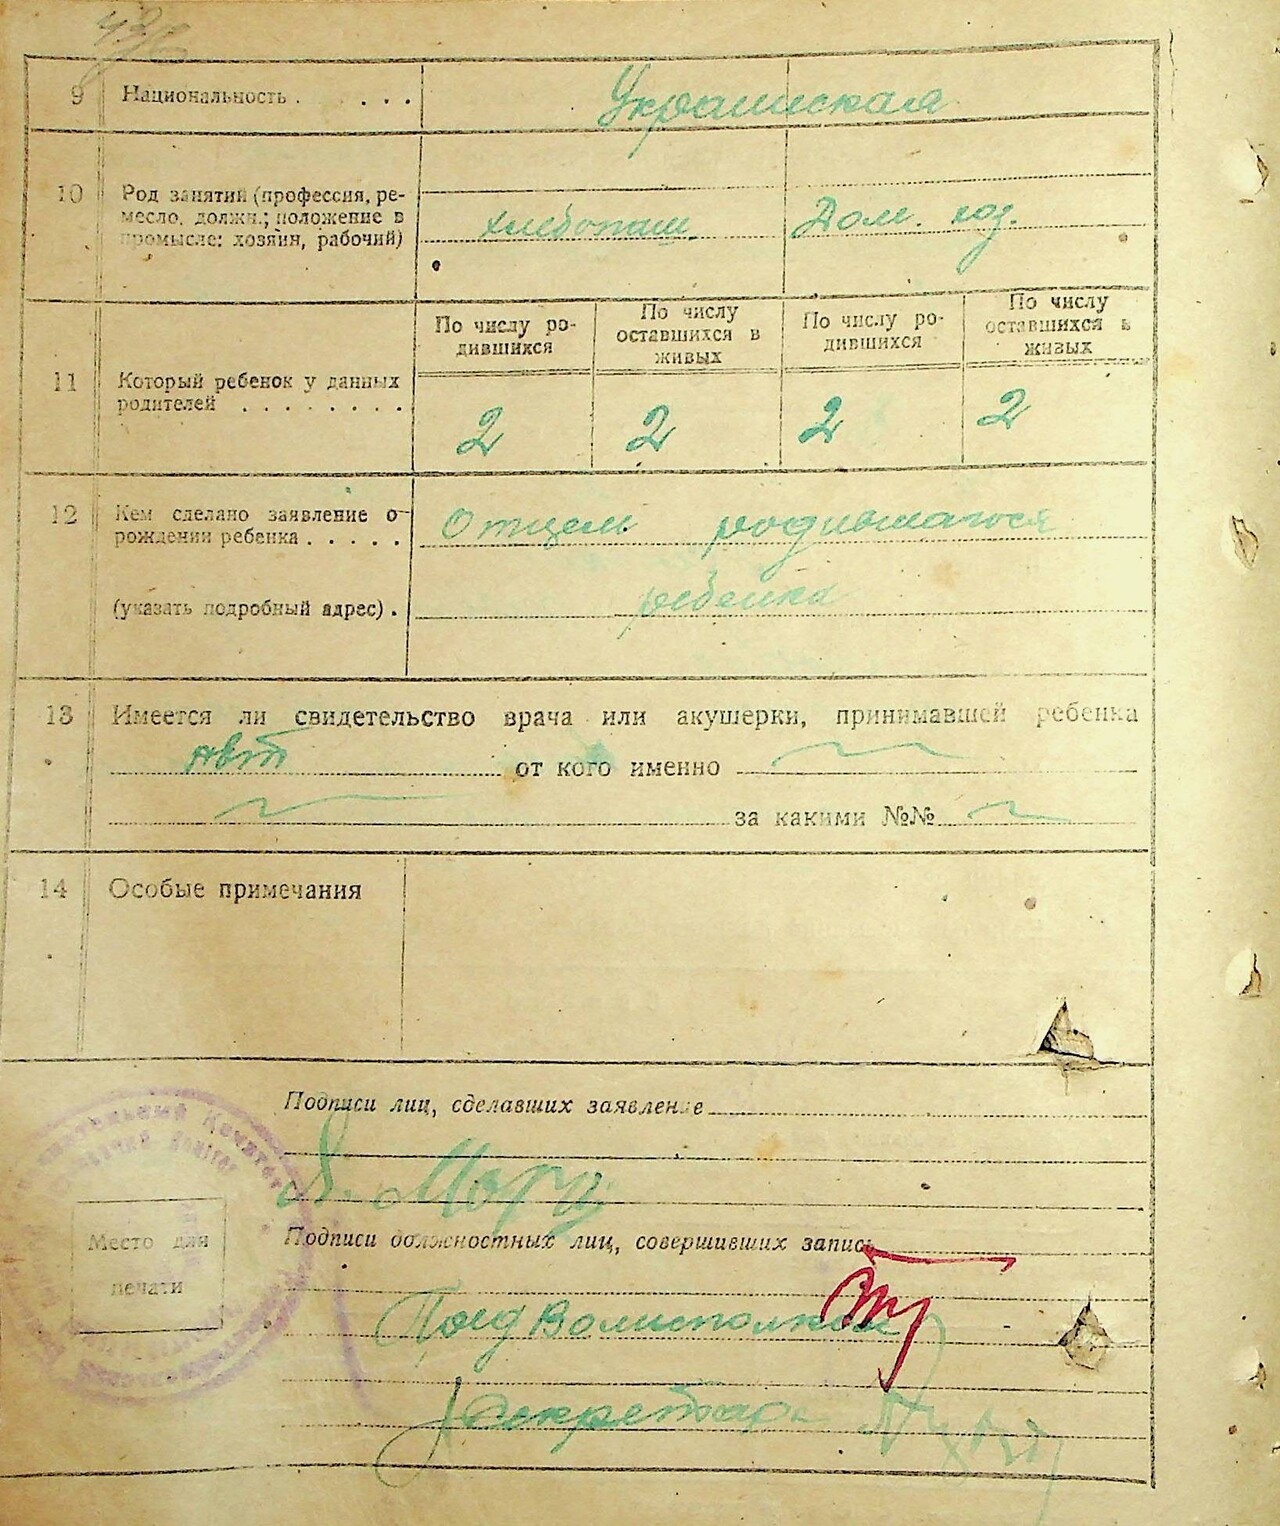 9 Национальность . . . . . Украинская
10 Род занятий (профессия, ре-
месло, должн.; положение в
промысле: хозяин, рабочий)
хлебопаш. Дом. хоз.
По числу ро-
дившихся
По числу
оставшихся в
живых
По числу ро-
дившихся
По числу
оставшихся в
живых
11 Который ребенок у данных
родителей . . . . . . . .
2 2 2 2
12 Кем сделано заявление о
рождении ребенка . . . . .
Отцем родившагося
(указать подробный адрес) . ребенка
13 Имеется ли свидетельство врача или акушерки, принимавшей ребенка
нет от кого именно
за какими №№
14 Особые примечания
Подписи лиц, сделавших заявление
Подписи должностных лиц, совершивших запись
Место для
печати
Пред Волисполкома
Секретарь